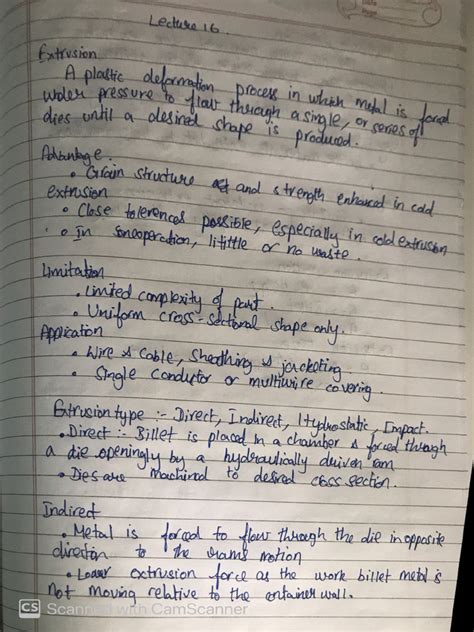 Lecture 16.
Extrusion
A plastic deformation process in which metal is forced
under pressure to flow through a single, or series of
dies until a desired shape is produced.
Advantage.
• Grain structure and strength enhanced in cold
extrusion
• Close tolerences possible, especially in cold extrusion
• In some operation, litittle or no waste.
Limitation
• Limited complexity of part.
• Uniform cross-sectional shape only.
Application
• Wire & Cable, Sheathing & jacketing.
• Single conductor or multiwire covering.
Extrusion type :- Direct, Indirect, Hydrostatic, Impact.
• Direct :- Billet is placed in a chamber & forced through
a die openingly by a hydraulically driven ram
• Dies are machined to desired cross section.
Indirect
• Metal is forced to flow through the die in opposite
direction to the rams motion
• Lower extrusion force as the work billet metal is
not moving relative to the container wall.
CS Scanned with CamScanner